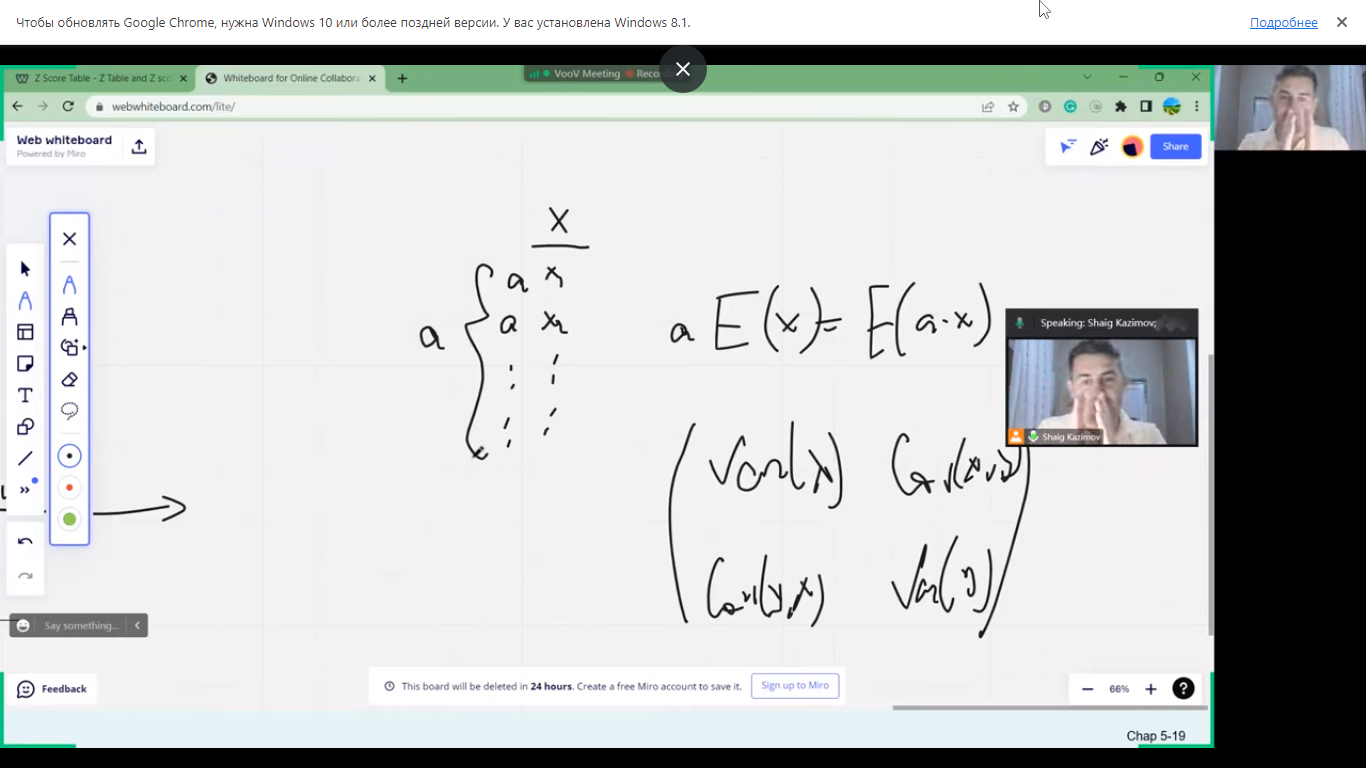 Чтобы обновлять Google Chrome, нужна Windows 10 или более поздней версии. У вас установлена Windows 8.1.
Подробнее
Z Score Table - Z Table and Z sco
Whiteboard for Online Collabora
VooV Meeting
webwhiteboard.com/lite/
Web whiteboard
Powered by Miro
Share
X
a x₁
a x₂
a
a E(x) = E(a·x)
Speaking: Shaig Kazimov;
Shaig Kazimov
Var(x) Cov(x,y)
Cov(y,x) Var(y)
Say something...
Feedback
This board will be deleted in 24 hours. Create a free Miro account to save it.
Sign up to Miro
66%
?
Chap 5-19